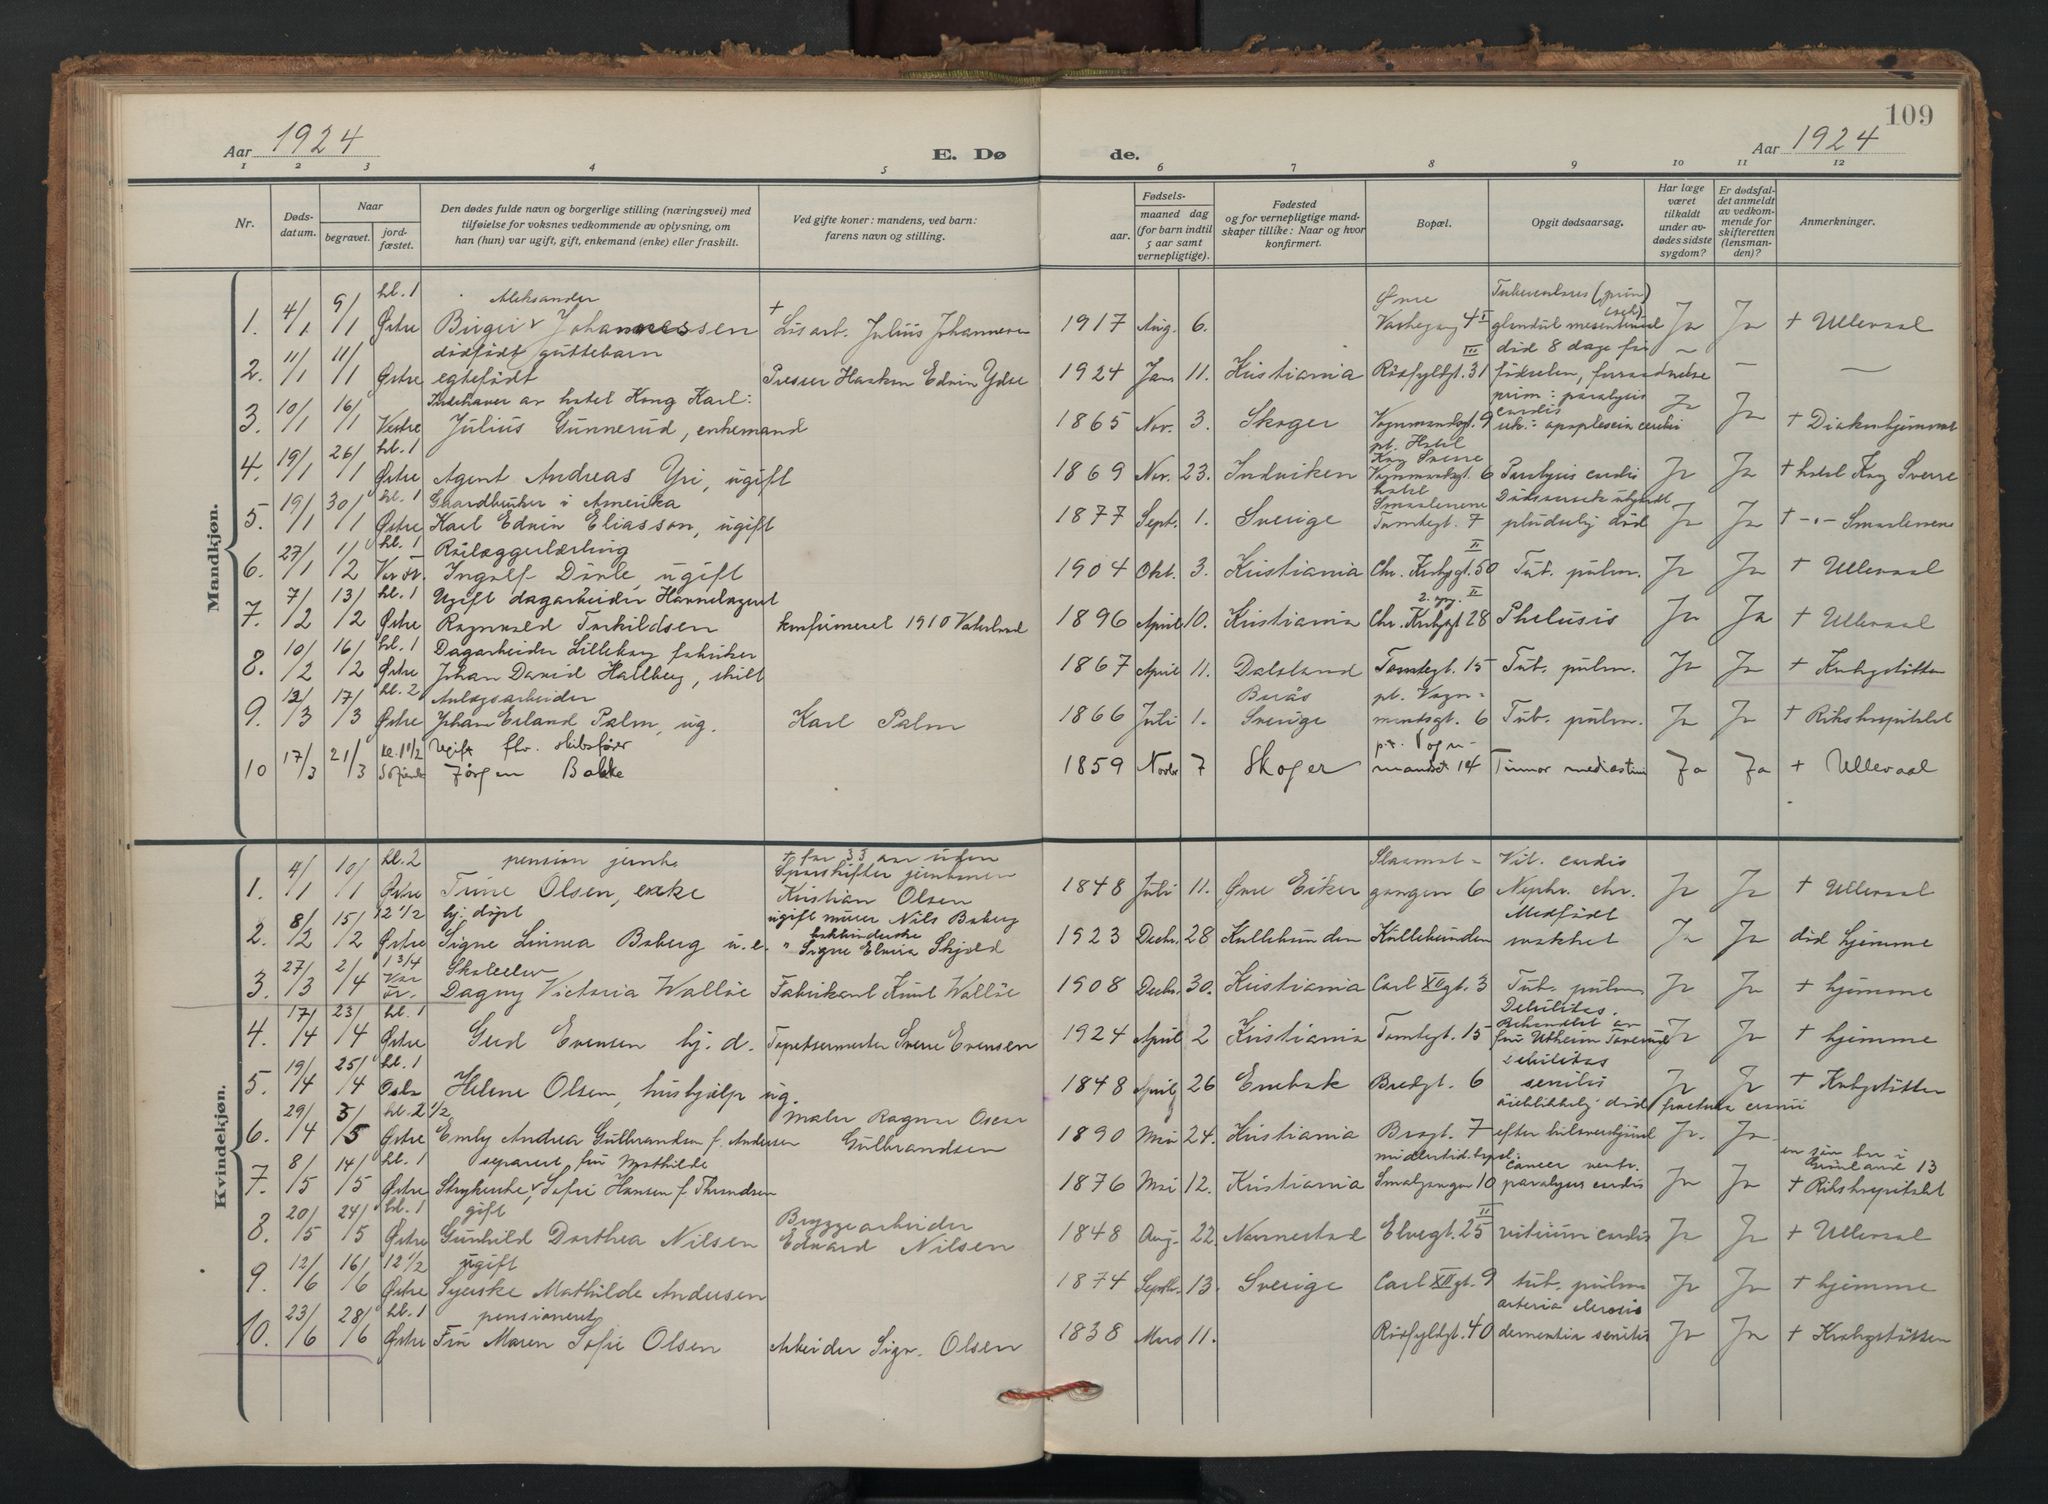 109
Aar 1924
E. Dø
de.
Aar 1924
1 2 3 4 5 6 7 8 9 10 11 12
Nr.
Dødsdatum.
Naar
begravet.
jordfæstet.
Den dødes fulde navn og borgerlige stilling (næringsvei) med
tilføielse for voksnes vedkommende av oplysning, om
han (hun) var ugift, gift, enkemand (enke) eller fraskilt.
Ved gifte koner: mandens, ved barn:
farens navn og stilling.
Fødsels-
aar.
maaned dag
(for barn indtil
5 aar samt
vernepligtige).
Fødested
og for vernepligtige mand-
skaper tillike: Naar og hvor
konfirmert.
Bopæl.
Opgit dødsaarsag.
Har læge
været
tilkaldt
under av-
dødes sidste
sygdom?
Er dødsfal-
det anmeldt
av vedkom-
mende for
skifteretten
(lensman-
den)?
Anmerkninger.
Mandkjøn.
1. 4/1 9/1 kl. 1 Østre Birger Aleksander Johannessen Løsarb. Julius Johannesen 1917 Aug. 6. Øvre 4 I Tuberculosis (prim) glandul mesenterial Ja Ja + Ullevaal
2. 11/1 11/1 Østre dødfødt guttebarn egtefødt Presser Haakon Edvin Ydse 1924 Jan. 11. Kristiania Rødfyldgt. 31 III død 8 dage før fødselen, – – –
3. 10/1 16/1 Vestre Indehaver av hotel Kong Karl: Julius Gunnerud, enkemand 1865 Nov. 3. Skoger Vognmandsgt. 9 prim: paralysis cordis Ja Ja + Diakonhjemmet
4. 19/1 26/1 kl. 1 Østre Agent Andreas Yri, ugift 1869 Nov. 23. Indviken pt. Hotel Kong Sverre Vognmandsgt. 6 Paralysis cordis Ja Ja + hotel Kong Sverre
5. 19/1 30/1 kl. 1 Østre Gaardbruker i Amerika Karl Edvin Eliasson, ugift 1877 Sept. 1. Sverige hotel Smaalenene Tomtegt. 7 Dødsaarsak ukjendt pludselig død Ja Ja + -"- Smaalenene
6. 27/1 1/2 kl. 1 Rørlæggerlærling Ingolf Dørle, ugift 1904 Okt. 3. Kristiania Chr. Krohgsgt. 50 II Tub. pulm. Ja Ja + Ullevaal
7. 7/2 13/2 kl. 1 Østre Ugift dagarbeider Havnelageret Ragnvald Torkildsen konfirmeret 1910 Vaterland 1896 April 10. Kristiania 2. opg. II Chr. Krohgsgt 28 Ja Ja + Ullevaal
8. 10/2 16/2 kl. 1 Østre Dagarbeider Lilleborg fabriker Johan David Hallberg, skilt 1867 April 11. Dalsland Tomtegt. 15 Tub. pulm. Ja Ja + Krohgstøtten
9. 13/3 17/3 kl. 2 Østre Anlægsarbeider Johan Erland Palm, ug. Karl Palm 1866 Juli 1. Borås Sverige pt. Vognmandsgt. 6 Tub. pulm. Ja Ja + Rikshospitalet
10 17/3 21/3 kl. 11 1/2 Ugift fhv. skibsfører Jørgen Bakke 1859 Novbr 7 Skoger pt. Vognmandsgt. 14 Tumor mediastini Ja Ja + Ullevaal
Kvindekjøn.
1. 4/1 10/1 kl. 2 Østre pension jernb. Trine Olsen, enke + for 33 aar siden Sporskifter jernbanen Kristian Olsen 1848 Juli 11. Øvre Eiker gangen 6 Vit. cordis Nephr. chr. Ja Ja + Ullevaal
2. 8/2 15/2 12 1/2 Østre hj. døpt Signe Linnea Boberg u.e. ugift murer Nils Boberg " bokbinderske Signe Elvira Skjold 1923 Decbr. 28 Kullebunden Kullebunden Medfødt svakhet Ja Ja død hjemme
3. 27/3 2/4 1 3/4 Vor Skoleelev Dagny Victoria Walløe Fabrikant Knut Walløe 1908 Decbr. 30. Kristiania Carl XII gt. 3 Tub. pulm Ja Ja + hjemme
4. 17/4 23/4 kl. 1 Østre Gerd Evensen hj. d. Tapetsermester Sverre Evensen 1924 April 2 Kristiania Tomtegt. 15 Debilitas. Behandlet av fru Utheim Toverud Ja Ja + hjemme
5. 19/4 25/4 kl. 1 Oslo Helene Olsen, hushjælp ug. 1848 April 26 Enebak Bredgt. 6 debilitas senilis Ja Ja + Krohgstøtten
6. 29/4 5/5 kl. 2 1/2 Østre Emly Andrea Gulbrandsen f. Andersen Maler Ragnar Oscar Gulbrandsen 1890 Mai 24. Kristiania 7 øieblikkelig død (fractura cranii efter Ja. Ja
7. 8/5 14/5 kl. 1 Østre separert fru Mathilde Strykerske Sofie Hansen f. Throndsen 1876 Mai 12. Kristiania midlertid. bopæl: Smalgangen 10 cancer ventr. paralysis cordis Ja Ja en søn bor i Grønland 13 + Rikshospitalet
8. 20/5 24/5 kl. 1 Østre gift Gunhild Dorthea Nilsen Bryggearbeider Edvard Nilsen 1848 Aug. 22. Navnestad Elvegt. 25 II vitium cordis Ja Ja + Ullevaal
9. 12/6 16/6 12 1/2 Østre ugift Syerske Mathilde Andersen 1874 Septbr. 13. Sverige Carl XII gt. 9 tub. pulm Ja Ja + hjemme
10. 23/6 28/6 kl. 1 Østre pensioneret Fru Maren Sofie Olsen Arbeider Sigv. Olsen 1838 Mars 11. Rødfyldgt. 40 dementia senilis Ja Ja + Krohgstøtten